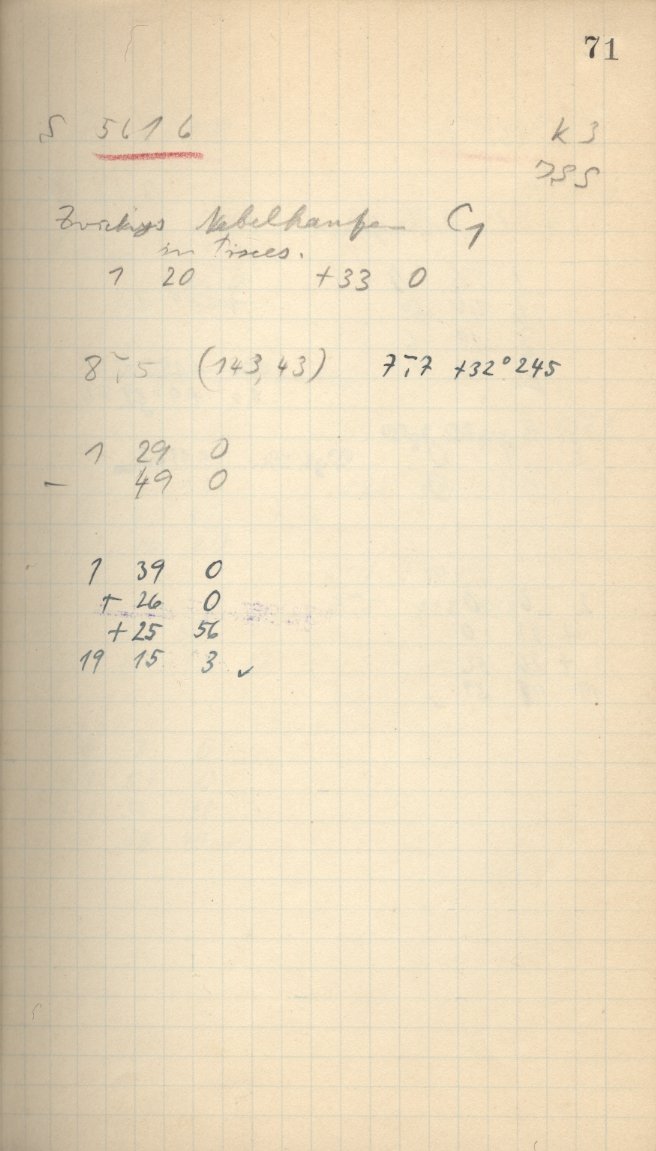 71
S 5616 K 3
JSS
Zwickys Nebelhaufen C1
in Pisces.
1 20 +33 0
8m,5 (143,43) 7m,7 +32°245
1 29 0
- 49 0
1 39 0
+ 26 0
+ 25 56
19 15 3 ✓